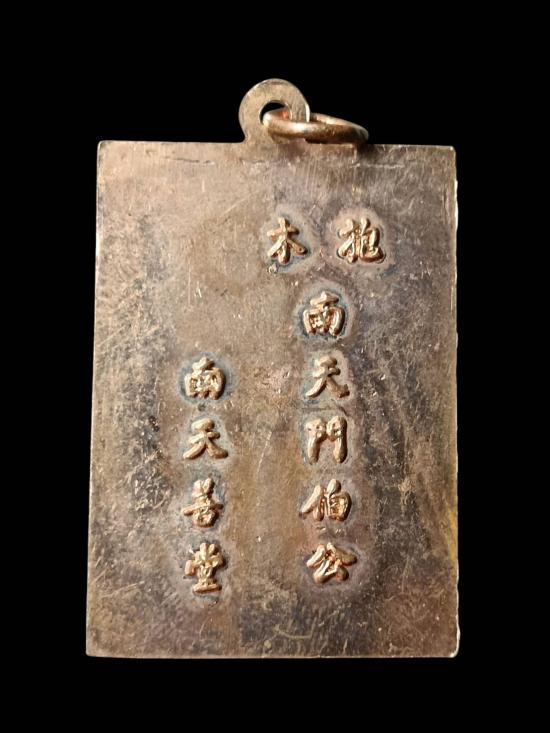 抱木
南天門伯公
南天善堂